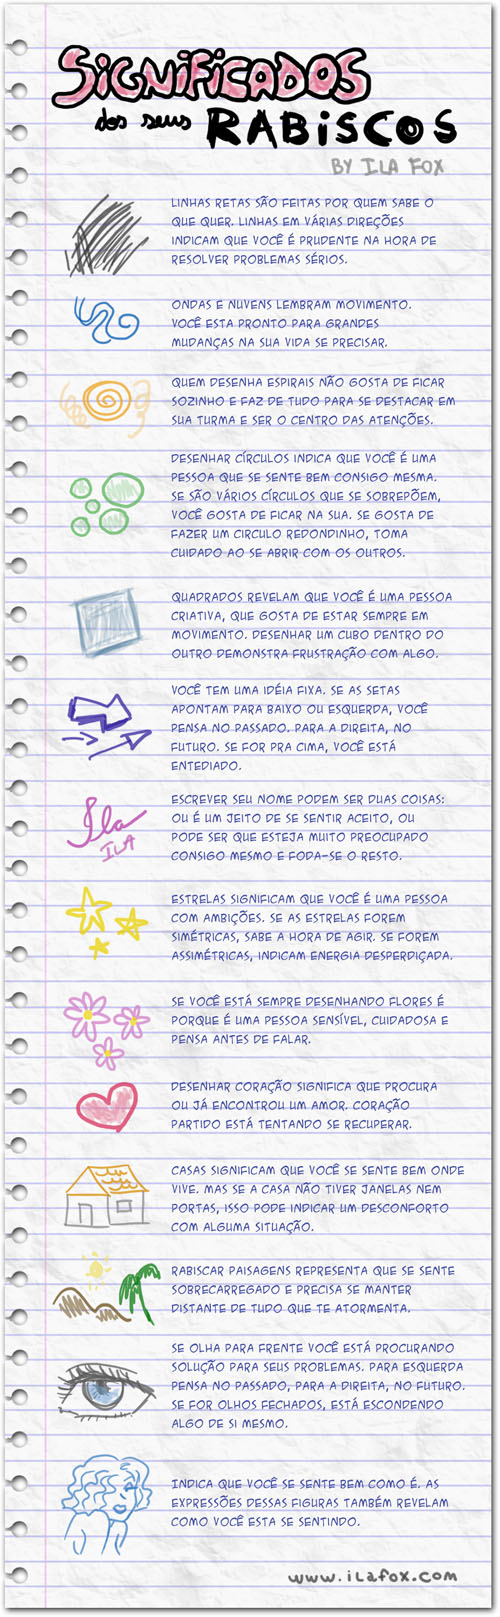 SIGNIFICADOS
dos seus RABISCOS
BY ILA FOX
LINHAS RETAS SÃO FEITAS POR QUEM SABE O
QUE QUER. LINHAS EM VÁRIAS DIREÇÕES
INDICAM QUE VOCÊ É PRUDENTE NA HORA DE
RESOLVER PROBLEMAS SÉRIOS.
ONDAS E NUVENS LEMBRAM MOVIMENTO.
VOCÊ ESTA PRONTO PARA GRANDES
MUDANÇAS NA SUA VIDA SE PRECISAR.
QUEM DESENHA ESPIRAIS NÃO GOSTA DE FICAR
SOZINHO E FAZ DE TUDO PARA SE DESTACAR EM
SUA TURMA E SER O CENTRO DAS ATENÇÕES.
DESENHAR CÍRCULOS INDICA QUE VOCÊ É UMA
PESSOA QUE SE SENTE BEM CONSIGO MESMA.
SE SÃO VÁRIOS CÍRCULOS QUE SE SOBREPÕEM,
VOCÊ GOSTA DE FICAR NA SUA. SE GOSTA DE
FAZER UM CIRCULO REDONDINHO, TOMA
CUIDADO AO SE ABRIR COM OS OUTROS.
QUADRADOS REVELAM QUE VOCÊ É UMA PESSOA
CRIATIVA, QUE GOSTA DE ESTAR SEMPRE EM
MOVIMENTO. DESENHAR UM CUBO DENTRO DO
OUTRO DEMONSTRA FRUSTRAÇÃO COM ALGO.
VOCÊ TEM UMA IDÉIA FIXA. SE AS SETAS
APONTAM PARA BAIXO OU ESQUERDA, VOCÊ
PENSA NO PASSADO. PARA A DIREITA, NO
FUTURO. SE FOR PRA CIMA, VOCÊ ESTÁ
ENTEDIADO.
Ila
ILA
ESCREVER SEU NOME PODEM SER DUAS COISAS:
OU É UM JEITO DE SE SENTIR ACEITO, OU
PODE SER QUE ESTEJA MUITO PREOCUPADO
CONSIGO MESMO E FODA-SE O RESTO.
ESTRELAS SIGNIFICAM QUE VOCÊ É UMA PESSOA
COM AMBIÇÕES. SE AS ESTRELAS FOREM
SIMÉTRICAS, SABE A HORA DE AGIR. SE FOREM
ASSIMÉTRICAS, INDICAM ENERGIA DESPERDIÇADA.
SE VOCÊ ESTÁ SEMPRE DESENHANDO FLORES É
PORQUE É UMA PESSOA SENSÍVEL, CUIDADOSA E
PENSA ANTES DE FALAR.
DESENHAR CORAÇÃO SIGNIFICA QUE PROCURA
OU JÁ ENCONTROU UM AMOR. CORAÇÃO
PARTIDO ESTÁ TENTANDO SE RECUPERAR.
CASAS SIGNIFICAM QUE VOCÊ SE SENTE BEM ONDE
VIVE. MAS SE A CASA NÃO TIVER JANELAS NEM
PORTAS, ISSO PODE INDICAR UM DESCONFORTO
COM ALGUMA SITUAÇÃO.
RABISCAR PAISAGENS REPRESENTA QUE SE SENTE
SOBRECARREGADO E PRECISA SE MANTER
DISTANTE DE TUDO QUE TE ATORMENTA.
SE OLHA PARA FRENTE VOCÊ ESTÁ PROCURANDO
SOLUÇÃO PARA SEUS PROBLEMAS. PARA ESQUERDA
PENSA NO PASSADO, PARA A DIREITA, NO FUTURO.
SE FOR OLHOS FECHADOS, ESTÁ ESCONDENDO
ALGO DE SI MESMO.
INDICA QUE VOCÊ SE SENTE BEM COMO É. AS
EXPRESSÕES DESSAS FIGURAS TAMBÉM REVELAM
COMO VOCÊ ESTA SE SENTINDO.
www.ilafox.com